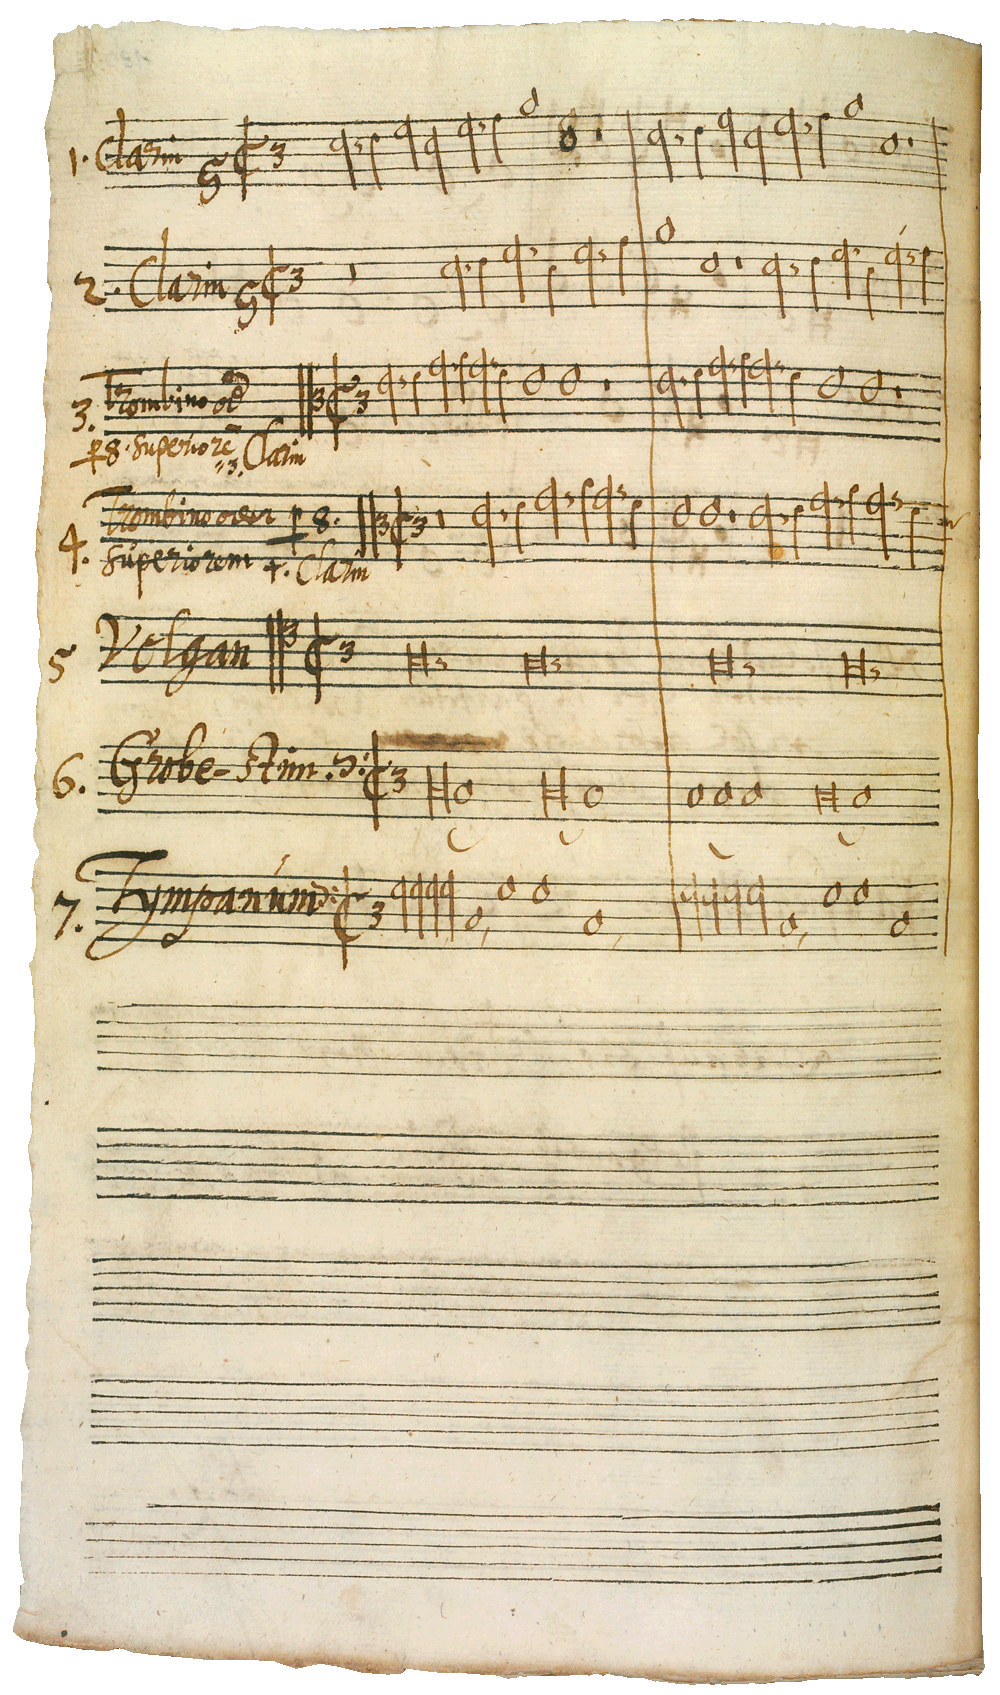 1. Clarin
2. Clarin
3. Trombino od
p 8. Superiorē
3. Clarin
4. Trombino oder p 8.
Superiorem 4. Clarin
5 Volgan
6. Grobe-Stim.
7. Tympanum